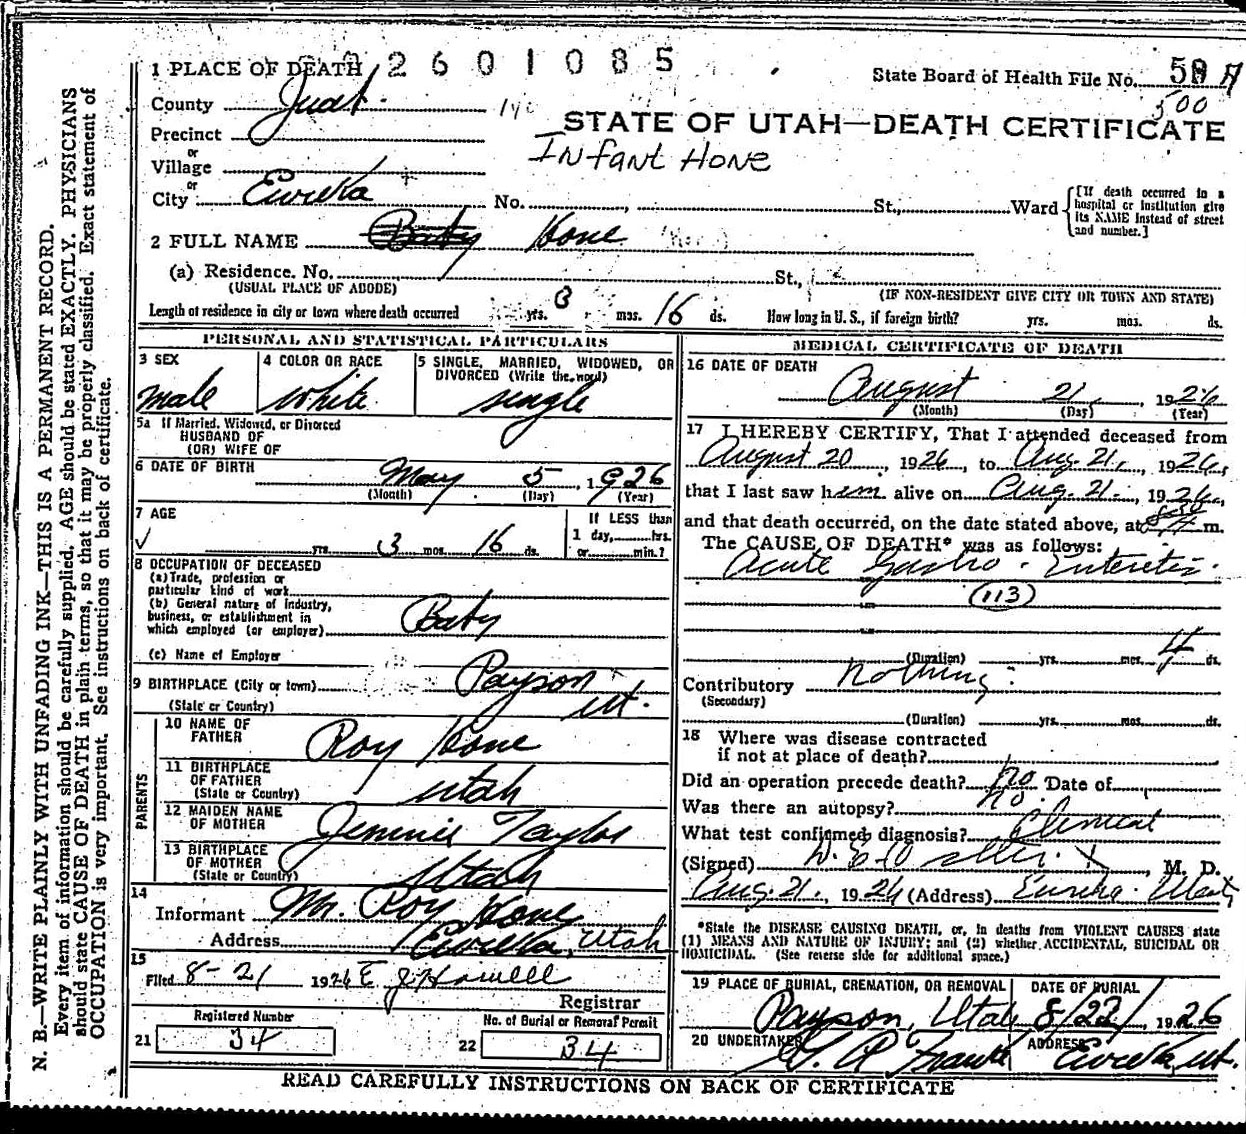 2601085
1 PLACE OF DEATH
State Board of Health File No. 50 A
500
County Juab.
STATE OF UTAH—DEATH CERTIFICATE
Infant Hone
Precinct
or
Village
or
City Eureka No. St., Ward
[If death occurred in a hospital or institution give its NAME instead of street and number.]
2 FULL NAME Baby Hone
(a) Residence. No. St.,
(USUAL PLACE OF ABODE) (IF NON-RESIDENT GIVE CITY OR TOWN AND STATE)
Length of residence in city or town where death occurred yrs. 3 mos. 16 ds. How long in U. S., if foreign birth? yrs. mos. ds.
PERSONAL AND STATISTICAL PARTICULARS
3 SEX
male
4 COLOR OR RACE
white
5 SINGLE, MARRIED, WIDOWED, OR DIVORCED (Write the word)
single
5a If Married, Widowed, or Divorced
HUSBAND OF
(OR) WIFE OF
6 DATE OF BIRTH May 5, 1926
(Month) (Day) (Year)
7 AGE
yrs. 3 mos. 16 ds.
If LESS than
1 day, hrs.
or min.?
8 OCCUPATION OF DECEASED
(a) Trade, profession or
particular kind of work
(b) General nature of Industry,
business, or establishment in
which employed (or employer) Baby
(c) Name of Employer
9 BIRTHPLACE (City or town) Payson
(State or Country) Ut.
PARENTS
10 NAME OF
FATHER Roy Hone
11 BIRTHPLACE
OF FATHER
(State or Country) Utah
12 MAIDEN NAME
OF MOTHER Jennie Taylor
13 BIRTHPLACE
OF MOTHER
(State or Country) Utah
14
Informant Mr. Roy Hone
Address Eureka, Utah
15
Filed 8-21 1926 E J Howell
Registrar
Registered Number
21 34
No. of Burial or Removal Permit
22 34
MEDICAL CERTIFICATE OF DEATH
16 DATE OF DEATH
August 21, 1926
(Month) (Day) (Year)
17 I HEREBY CERTIFY, That I attended deceased from
August 20, 1926, to Aug. 21, 1926,
that I last saw him alive on Aug. 21, 1926,
and that death occurred, on the date stated above, at m.
The CAUSE OF DEATH* was as follows:
Acute Gastro-Enteritis.
(113)
(Duration) yrs. mos. 4 ds.
Contributory Nothing.
(Secondary)
(Duration) yrs. mos. ds.
18 Where was disease contracted
if not at place of death?
Did an operation precede death? no Date of
Was there an autopsy? no.
What test confirmed diagnosis? Clinical
(Signed) M. D.
Aug. 21, 1926 (Address) Eureka. Utah
*State the DISEASE CAUSING DEATH, or, in deaths from VIOLENT CAUSES state
(1) MEANS AND NATURE OF INJURY; and (2) whether ACCIDENTAL, SUICIDAL OR
HOMICIDAL. (See reverse side for additional space.)
19 PLACE OF BURIAL, CREMATION, OR REMOVAL
Payson, Utah
DATE OF BURIAL
8/22/ 1926
20 UNDERTAKER
ADDRESS
Eureka, Ut.
READ CAREFULLY INSTRUCTIONS ON BACK OF CERTIFICATE
N. B.—WRITE PLAINLY WITH UNFADING INK—THIS IS A PERMANENT RECORD.
Every item of information should be carefully supplied. AGE should be stated EXACTLY. PHYSICIANS
should state CAUSE OF DEATH in plain terms, so that it may be properly classified. Exact statement of
OCCUPATION is very important. See instructions on back of certificate.